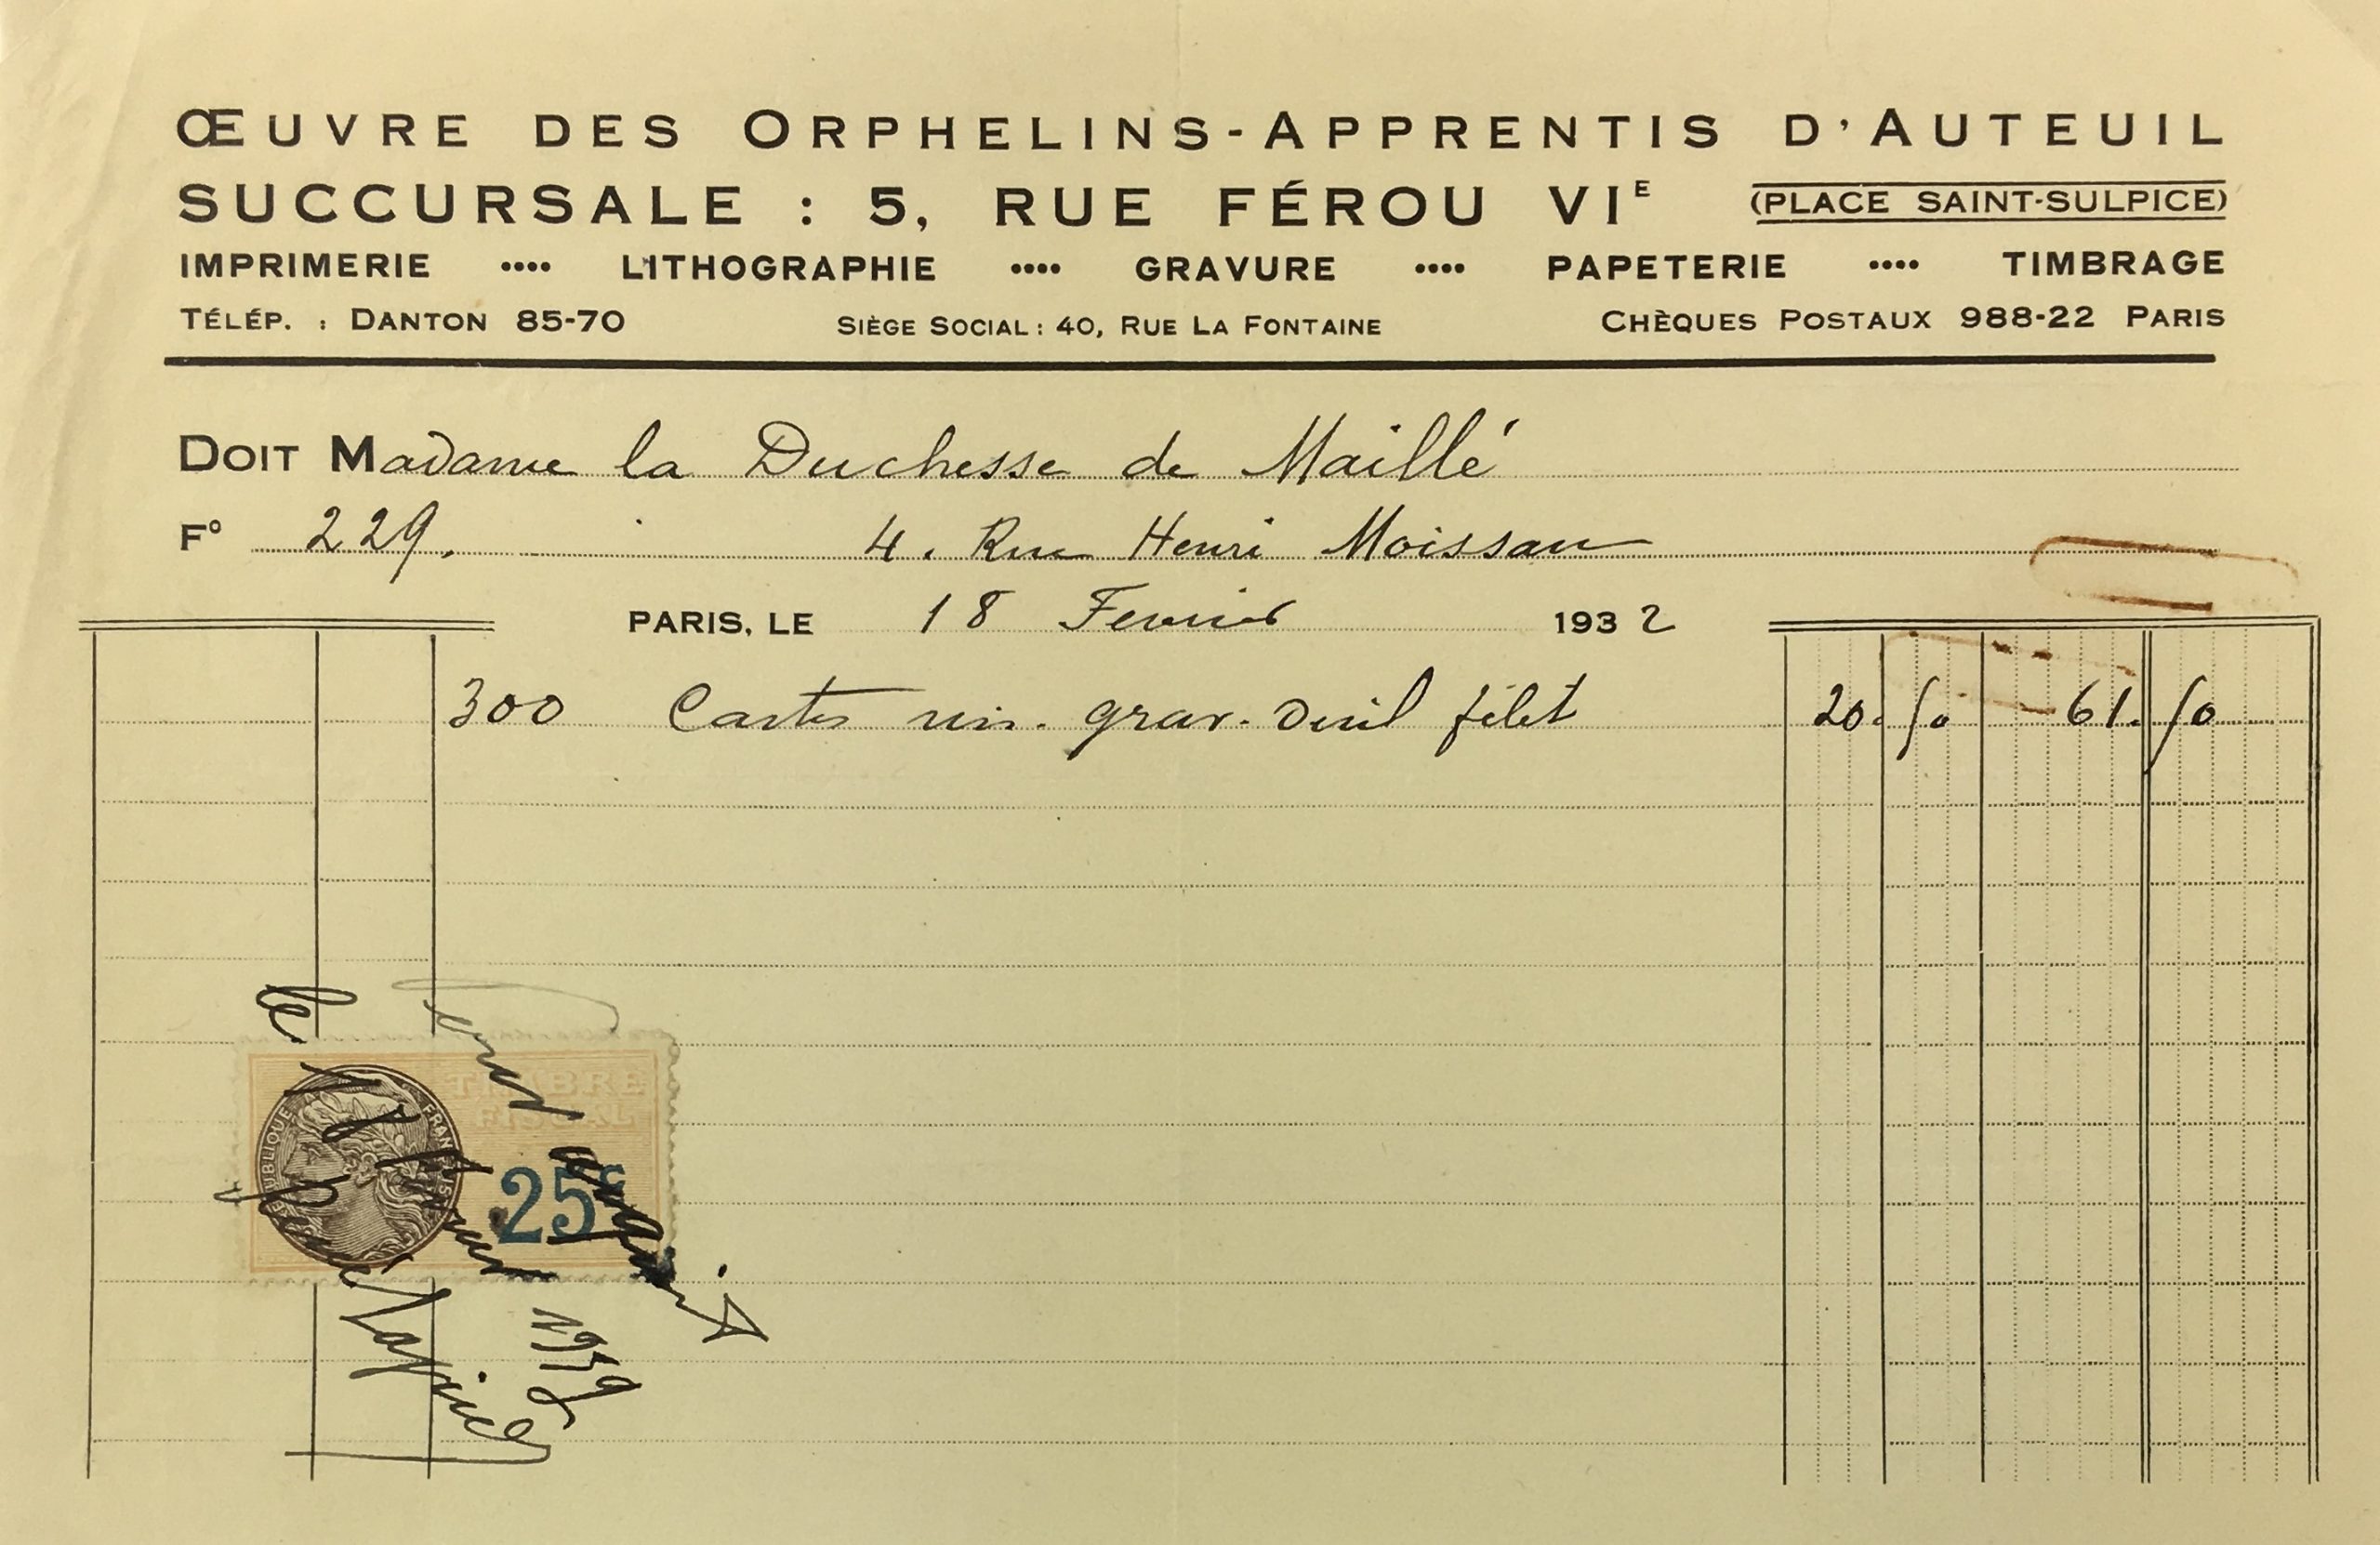 ŒUVRE DES ORPHELINS-APPRENTIS D'AUTEUIL
SUCCURSALE : 5, RUE FÉROU VIE (PLACE SAINT-SULPICE)
IMPRIMERIE •••• LITHOGRAPHIE •••• GRAVURE •••• PAPETERIE •••• TIMBRAGE
TÉLÉP. : DANTON 85-70 SIÈGE SOCIAL : 40, RUE LA FONTAINE CHÈQUES POSTAUX 988-22 PARIS
DOIT Madame la Duchesse de Maillé
Fº 229. 4. Rue Henri Moissan
PARIS, LE 18 Fevrier 1932
300 Cartes vis. grav. deuil filet 20. 50 61. 50
TIMBRE
FISCAL
RÉPUBLIQUE FRANÇAISE
25c
Pour acquit
le 18 1932